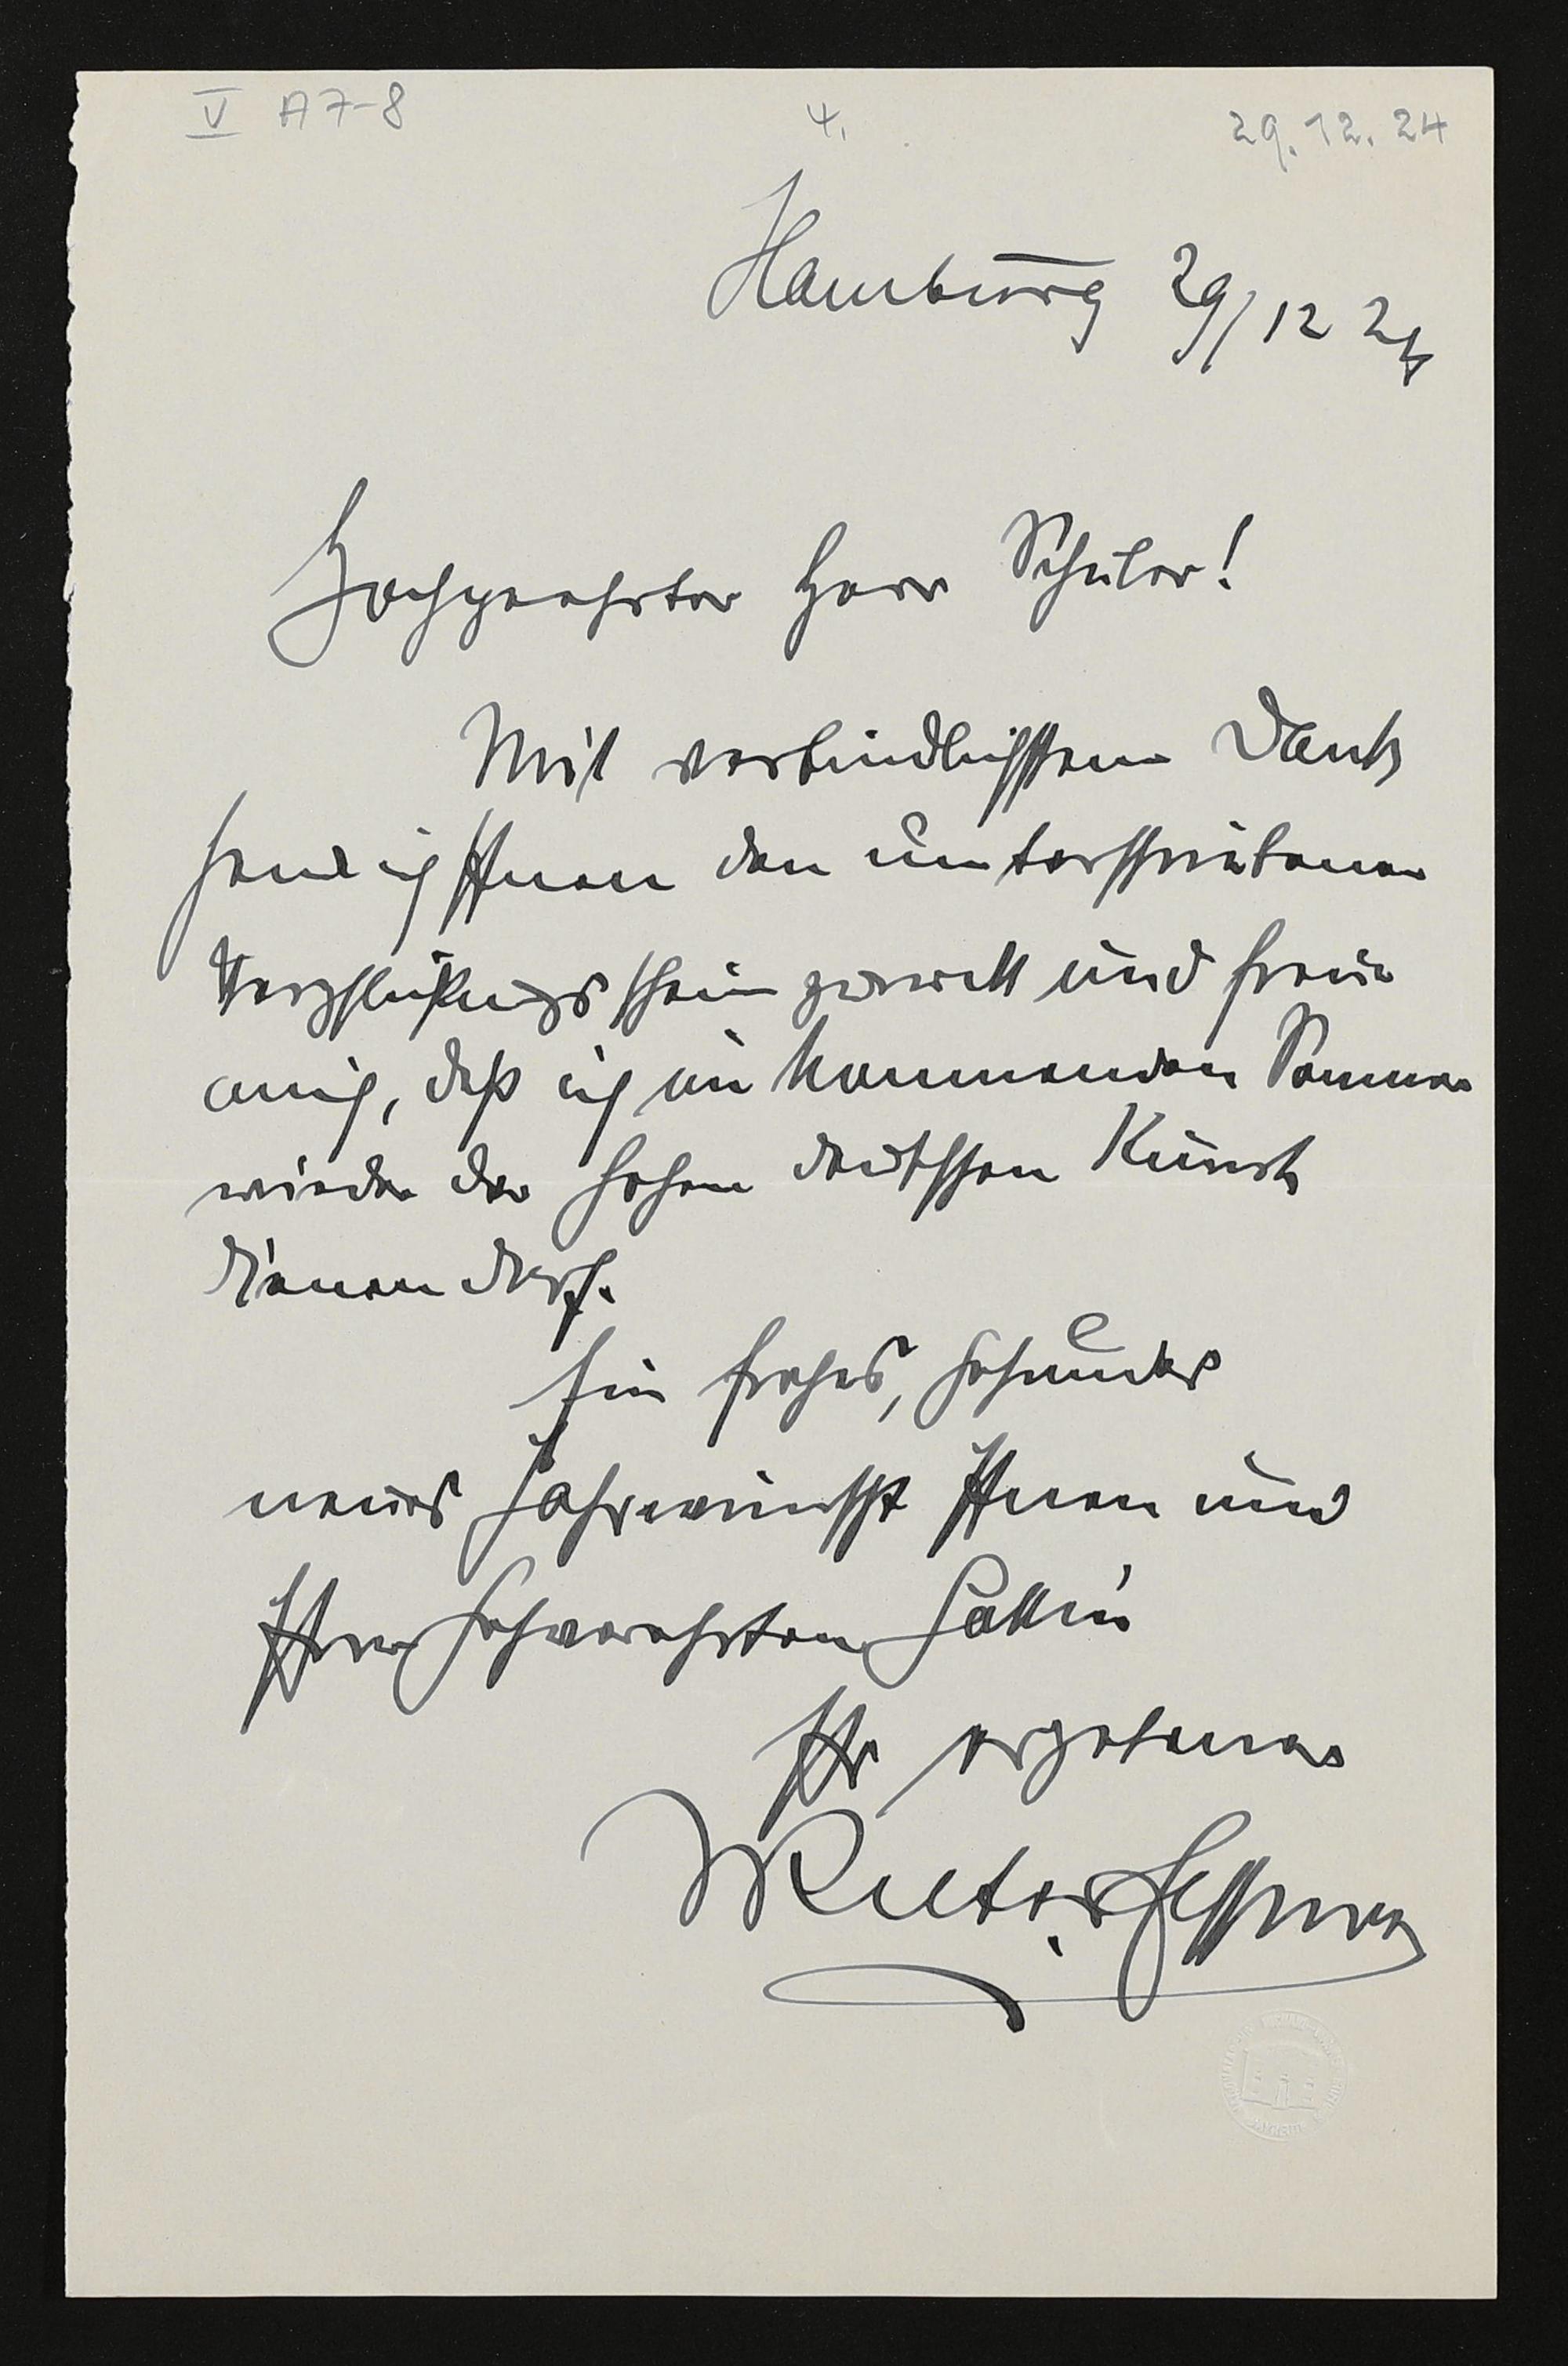 V A7-8 4. 29.12.24
Hamburg 29/12 24
Hochgeehrter Herr Schuler!
Mit verbindlichstem Dank
send ich Ihnen den unterschriebenen
Verpflichtungsschein zurück und freue
mich, daß ich im kommenden Sommer
wieder der hohen deutschen Kunst
dienen darf.
Ein frohes, gesundes
neues Jahr wünscht Ihnen und
Ihrer hochverehrten Gattin
Ihr ergebener